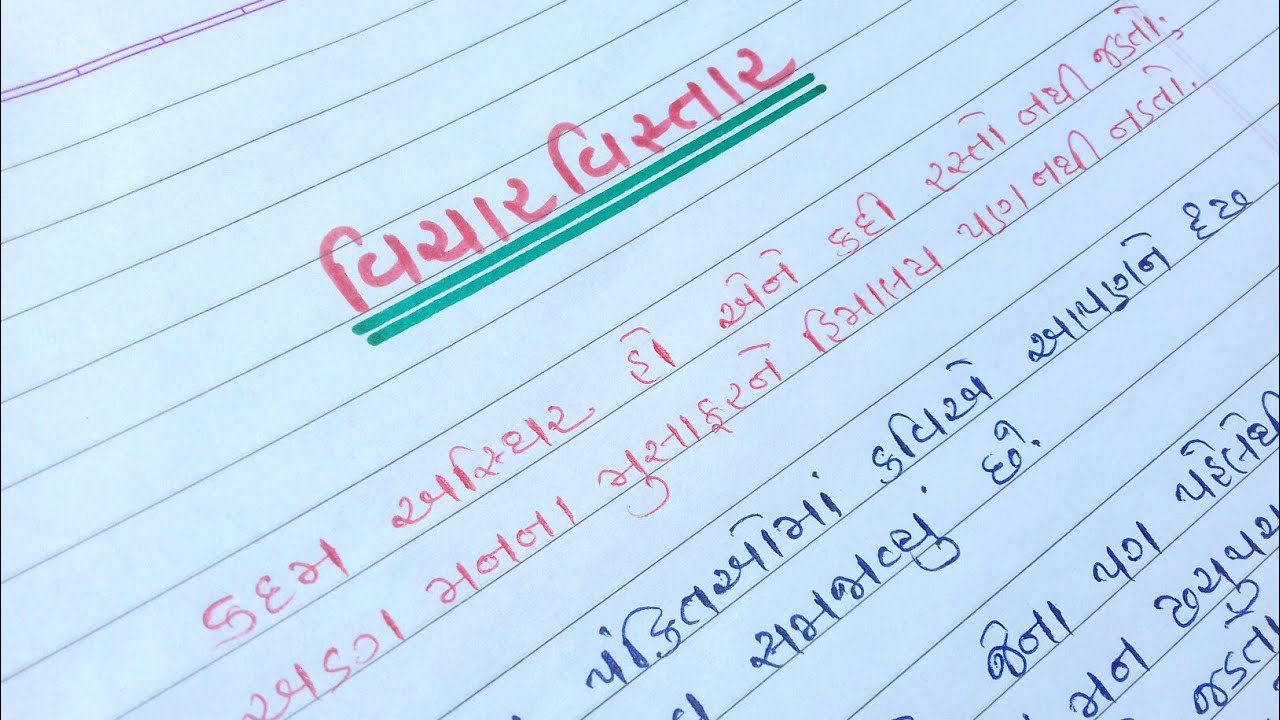 વિચાર વિસ્તાર
કદમ અસ્થિર હો એને કદી રસ્તો નથી જડતો;
અડગ મનના મુસાફરને હિમાલય પણ નથી નડતો.
પંક્તિઓમાં કવિએ આપણને દૃઢ
સમજાવ્યું છે.
જેના પગ પહેલેથી
મન
જડતો